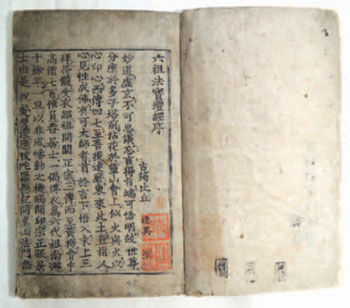 六祖法寶壇經序
古筠比丘
德異 撰
妙道虛玄不可思議忘言得旨端可悟明故世尊
分座於多子塔前拈花於靈山會上似火與火以
心印心西傳四七至菩提達磨東來此土直指人
心見性成佛有可大師者首於言下悟入末上三
拜得髓受衣紹祖開闡正宗三傳而至黃梅會中
高僧七百惟負舂居士一偈傳衣爲六代祖南遯
十餘年一旦以非風幡動之機觸開印宗正眼居
士由是祝髮登壇應跋陀羅懸記開東山法門韋